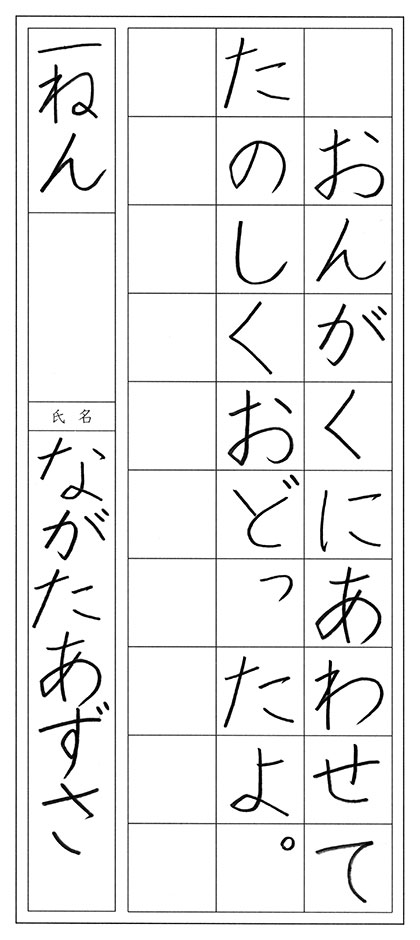 おんがくにあわせて
たのしくおどったよ。
一ねん
氏名
ながたあずさ